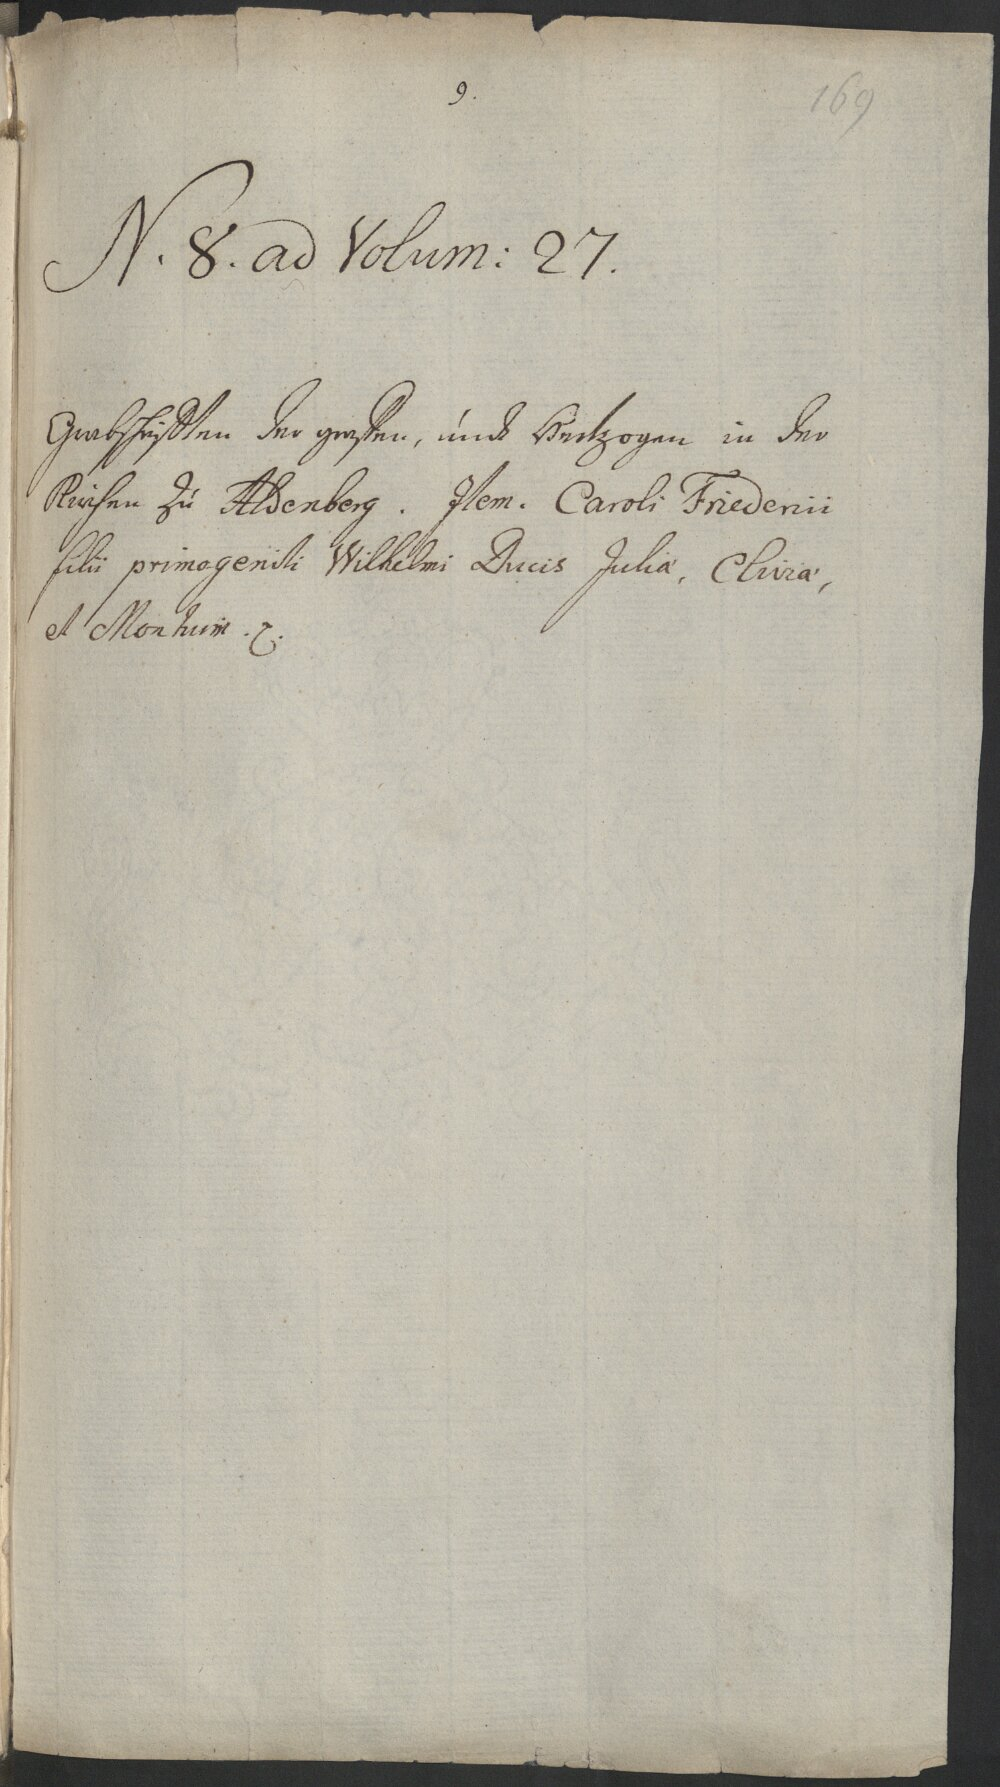 9.
169
N. 8. ad Volum: 27.
Grabschrifften der graffen, undt Hertzogen in der
Kirchen zu Aldenberg. Item. Caroli Friederici
filii primogeniti Wilhelmi Ducis Juliæ, Cliviæ,
et Montium.